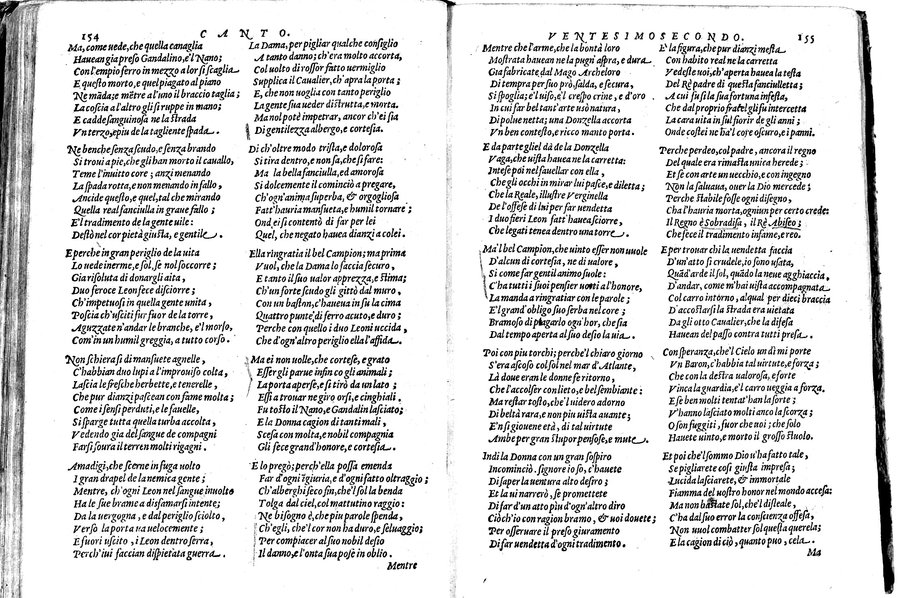 154
CANTO.
Ma, come uede, che quella canaglia
Hauean gia preso Gandalino, e'l Nano;
Con l'empio ferro in mezzo a lor si scaglia
E questo morto, e quel piagato al piano
Ne mãda; e mẽtre a l'uno il braccio taglia;
La coscia a l'altro gli si ruppe in mano;
E cadde sanguinosa ne la strada
Vn terzo, e piu de la tagliente spada.
Ne benche senza scudo, e senza brando
Si troui a pie, che gli han morto il cauallo,
Teme l'inuitto core; anzi menando
La spada rotta, e non menando in fallo,
Ancide questo, e quel, tal che mirando
Quella real fanciulla in graue fallo;
E'l tradimento de la gente uile:
Destò nel cor pietà giusta, e gentile.
E perche in gran periglio de la uita
Lo uede inerme, e sol, se nol soccorre;
Gia risoluta di donargli aita,
Duo feroce Leon fece disciorre;
Ch'impetuosi in quella gente unita,
Poscia ch'usciti fur fuor de la torre,
Aguzzate n'andar le branche, e'l morso,
Com'in un humil greggia, a tutto corso.
Non schiera si di mansuete agnelle,
C'habbian duo lupi a l'improuiso colta,
Lascia le fresche herbette, e tenerelle,
Che pur dianzi pascean con fame molta;
Come i sensi perduti, e le fauelle,
Si sparge tutta quella turba accolta,
Vedendo gia del sangue de compagni
Farsi soura il terren molti rigagni.
Amadigi, che scerne in fuga uolto
I gran drapel de la nemica gente;
Mentre, ch'ogni Leon nel sangue inuolto
Ha le sue brame a disfamarsi intente;
Da la uergogna, e dal periglio sciolto,
Verso la porta ua uelocemente;
E fuori uscito, i Leon dentro ferra,
Perch'iui faccian dispietata guerra.
La Dama, per pigliar qualche consiglio
A tanto danno; ch'era molto accorta,
Col uolto di rossor fatto uermiglio
Supplica il Caualier, ch'apra la porta;
E, che non uoglia con tanto periglio
La gente sua ueder distrutta, e morta.
Ma nol potè impetrar, ancor ch'ei sia
Di gentilezza albergo, e cortesia.
Di ch'oltre modo trista, e dolorosa
Si tira dentro, e non sa, che si fare:
Ma la bella fanciulla, ed amorosa
Si dolcemente il cominciò a pregare,
Ch'ogn'anima superba, & orgogliosa
Fatt'hauria mansueta, e humil tornare;
Ond'ei si contentò di far per lei
Quel, che negato hauea dianzi a colei.
Ella ringratia il bel Campion; ma prima
Vuol, che la Dama lo faccia securo,
E tanto il suo ualor apprezza, e stima;
Ch'un forte scudo gli gittò dal muro,
Con un baston, c'haueua in su la cima
Quattro punte di ferro acuto, e duro;
Perche con quello i duo Leoni uccida,
Che d'ogn'altro periglio ella l'affida.
Ma ei non uolle, che cortese, e grato
Esser gli parue infin co gli animali;
La porta aperse, e si tirò da un lato;
Essi a trouar ne giro orsi, e cinghiali.
Fu tosto il Nano, e Gandalin lasciato;
E la Donna cagion di tanti mali,
Scesa con molta, e nobil compagnia
Gli fece grand'honore, e cortesia.
E lo pregò; perch'ella possa emenda
Far d'ogn'iniuria, e d'ogni fatto oltraggio;
Ch'alberghi seco sin, che'l sol la benda
Tolga dal ciel, col mattutino raggio:
Ne bisogno è, che piu parole spenda,
Ch'egli, che'l cor non ha duro, e seluaggio;
Per compiacer al suo nobil desio
Il danno, e l'onta sua pose in oblio.
Mentre
VENTESIMOSECONDO.
155
Mentre che l'arme, che la bontà loro
Mostrata hauean ne la pugn'aspra, e dura
Gia fabricate dal Mago Archeloro
Di tempra per suo prò salda, e secura,
Si spoglia; e'l uiso, e'l crespo crine, e d'oro
In cui far bel tant'arte usò natura,
Di polue netta; una Donzella accorta
Vn ben contesto, e ricco manto porta.
E da parte gliel dà de la Donzella
Vaga, che uista hauea ne la carretta:
Intese poi nel fauellar con ella,
Che gli occhi in mirar lui pasce, e diletta;
Che la Reale, illustre Verginella
De l'offese di lui per far uendetta
I duo fieri Leon fatt'hauea sciorre,
Che legati tenea dentro una torre.
Ma'l bel Campion, che uinto esser non uuole
D'alcun di cortesia, ne di ualore,
Si come far gentil animo suole:
C'ha tutti i suoi pensier uolti al'honore,
La manda a ringratiar con le parole;
E'l grand'obligo suo serba nel core;
Bramoso di pagarlo ogn'hor, che sia
Dal tempo aperta al suo desio la uia.
Poi con piu torchi; perche'l chiaro giorno
S'era ascoso col sol nel mar d'Atlante,
Là doue eran le donne fe ritorno,
Che l'accolser con lieto, e bel sembiante:
Ma restar tosto, che'l uidero adorno
Di beltà rara, e non piu uista auante;
E'n si giouene età, di tal uirtute
Ambe per gran stupor pensose, e mute.
Indi la Donna con un gran sospiro
Incominciò. signore io so, c'hauete
Di saper la uentura alto desiro;
Et la ui narrerò, se promettete
Di far d'un atto piu d'ogn'altro diro
Ciò ch'io con ragion bramo, & uoi douete;
Per osseruare il preso giuramento
Di far uendetta d'ogni tradimento.
E la figura, che pur dianzi mesta
Con habito real ne la carretta
Vedeste uoi, ch'aperta hauea la testa
Del Rè padre di questa fanciulletta;
A cui fu si la sua fortuna infesta,
Che dal proprio fratel gli fu intercetta
La cara uita in sul fiorir de gli anni;
Onde costei ne ha'l core oscuro, e i panni.
Perche perdeo, col padre, ancora il regno
Del quale era rimasta unica herede;
Et se con arte un uecchio, e con ingegno
Non la saluaua, ouer la Dio mercede;
Perche stabile fosse ogni disegno,
Cha l'hauria morta, ogniun per certo crede:
Il Regno è Sobradisa, il Rè Abiseo;
Che fece il tradimento infame, e reo.
E per trouar chi la uendetta faccia
D'un'atto si crudele, io sono usata,
Quãd'arde il sol, quãdo la neue agghiaccia,
D'andar, come m'hai uista accompagnata
Col carro intorno, al qual per dieci braccia
D'accostarsi la strada era uietata
Da gli otto Caualier, che la difesa
Hauean del passo contra tutti presa.
Con speranza, che'l Cielo un dì mi porte
Vn Baron, c'habbia tal uirtute, e forza;
Che con la destra ualorosa, e forte
Vinca la guardia, e'l carro ueggia a forza.
E se ben molti tentat'han la sorte;
V'hanno lasciato molti anco la scorza;
O son fuggiti, fuor che uoi; che solo
Hauete uinto, e morto il grosso stuolo.
Et poi che'l sommo Dio u'ha fatto tale,
Se pigliarete cosi giusta impresa;
Lucida lasciarete, & immortale
Fiamma del uostro honor nel mondo accesa:
Ma non bastate sol, che'l disleale,
C'ha dal suo error la conscienza offesa,
Non uuol combatter sol questa querela;
E la cagion di ciò, quanto puo, cela.
Ma